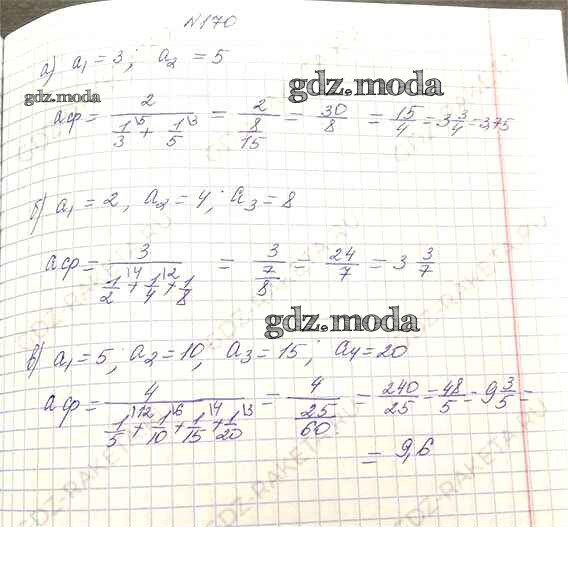 №170
а) a₁ = 3; a₂ = 5
gdz.moda
gdz.moda
aф = 2/(1/3\5 + 1/5\3) = 2/(8/15) = 30/8 = 15/4 = 3 3/4 = 3,75
б) a₁ = 2, a₂ = 4; a₃ = 8
aф = 3/(1/2\4 + 1/4\2 + 1/8) = 3/(7/8) = 24/7 = 3 3/7
gdz.moda
в) a₁ = 5; a₂ = 10; a₃ = 15; a₄ = 20
aф = 4/(1/5\12 + 1/10\6 + 1/15\4 + 1/20\3) = 4/(25/60) = 240/25 = 48/5 = 9 3/5 =
= 9,6
GDZ-RAKETA.RU